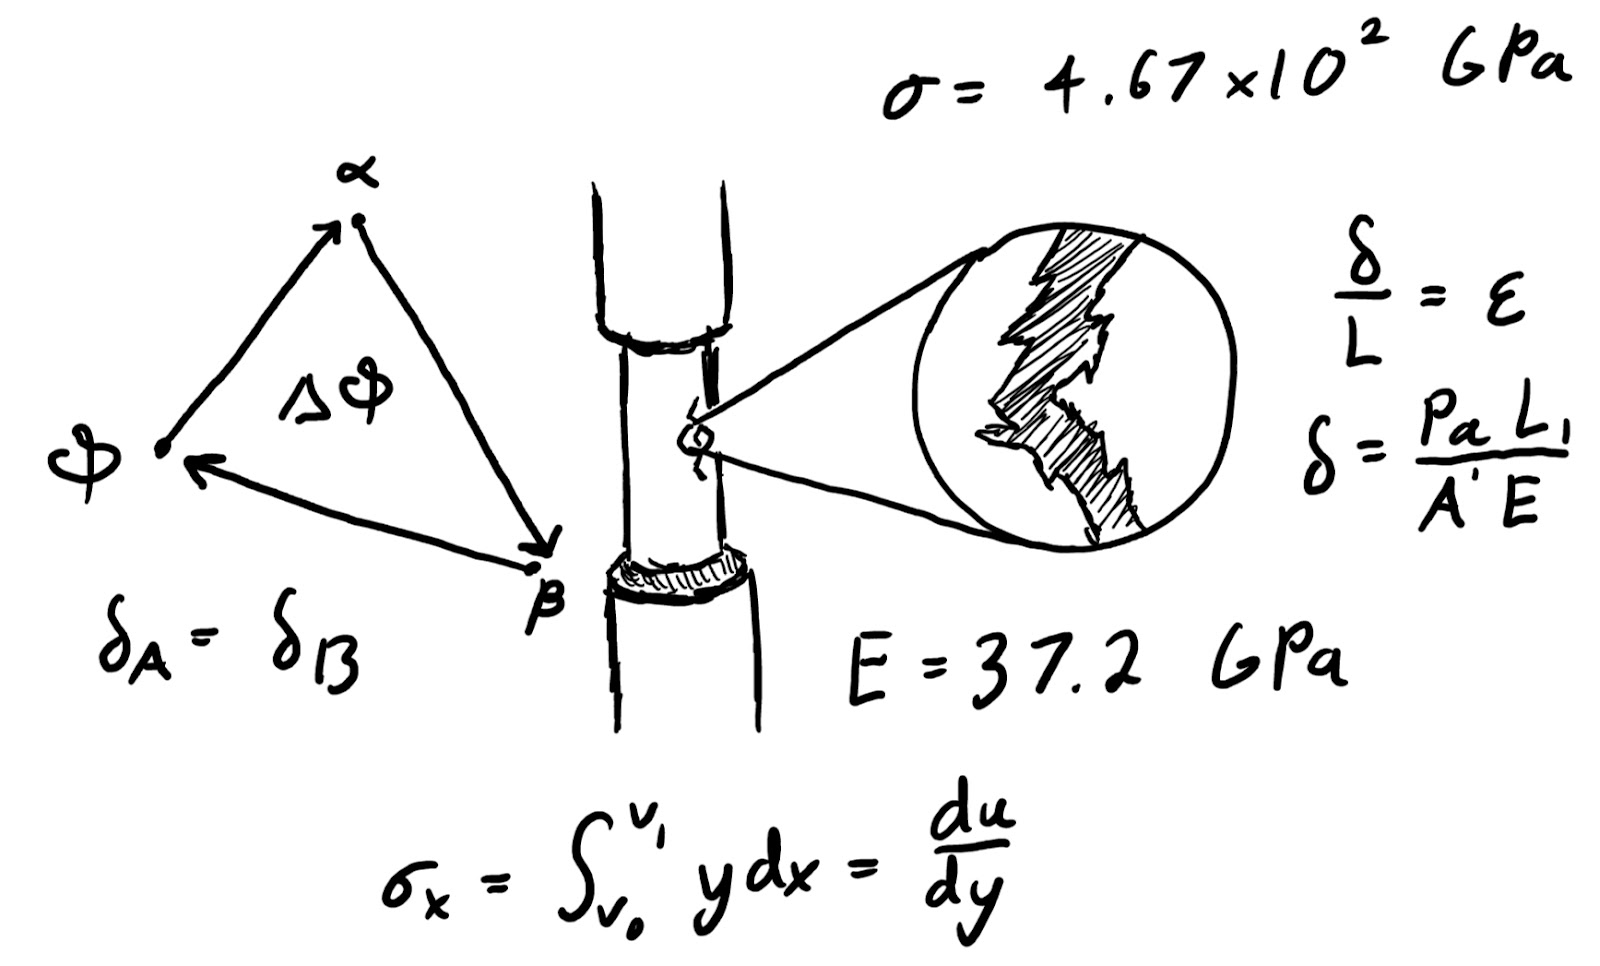 σ = 4.67 ×10² GPa
α
δ/L = ε
ΔΦ
Φ
δ = PₐL₁/A'E
β
δA = δB
E = 37.2 GPa
σₓ = ∫ᵥ₀ᵛ¹ ydx = du/dy